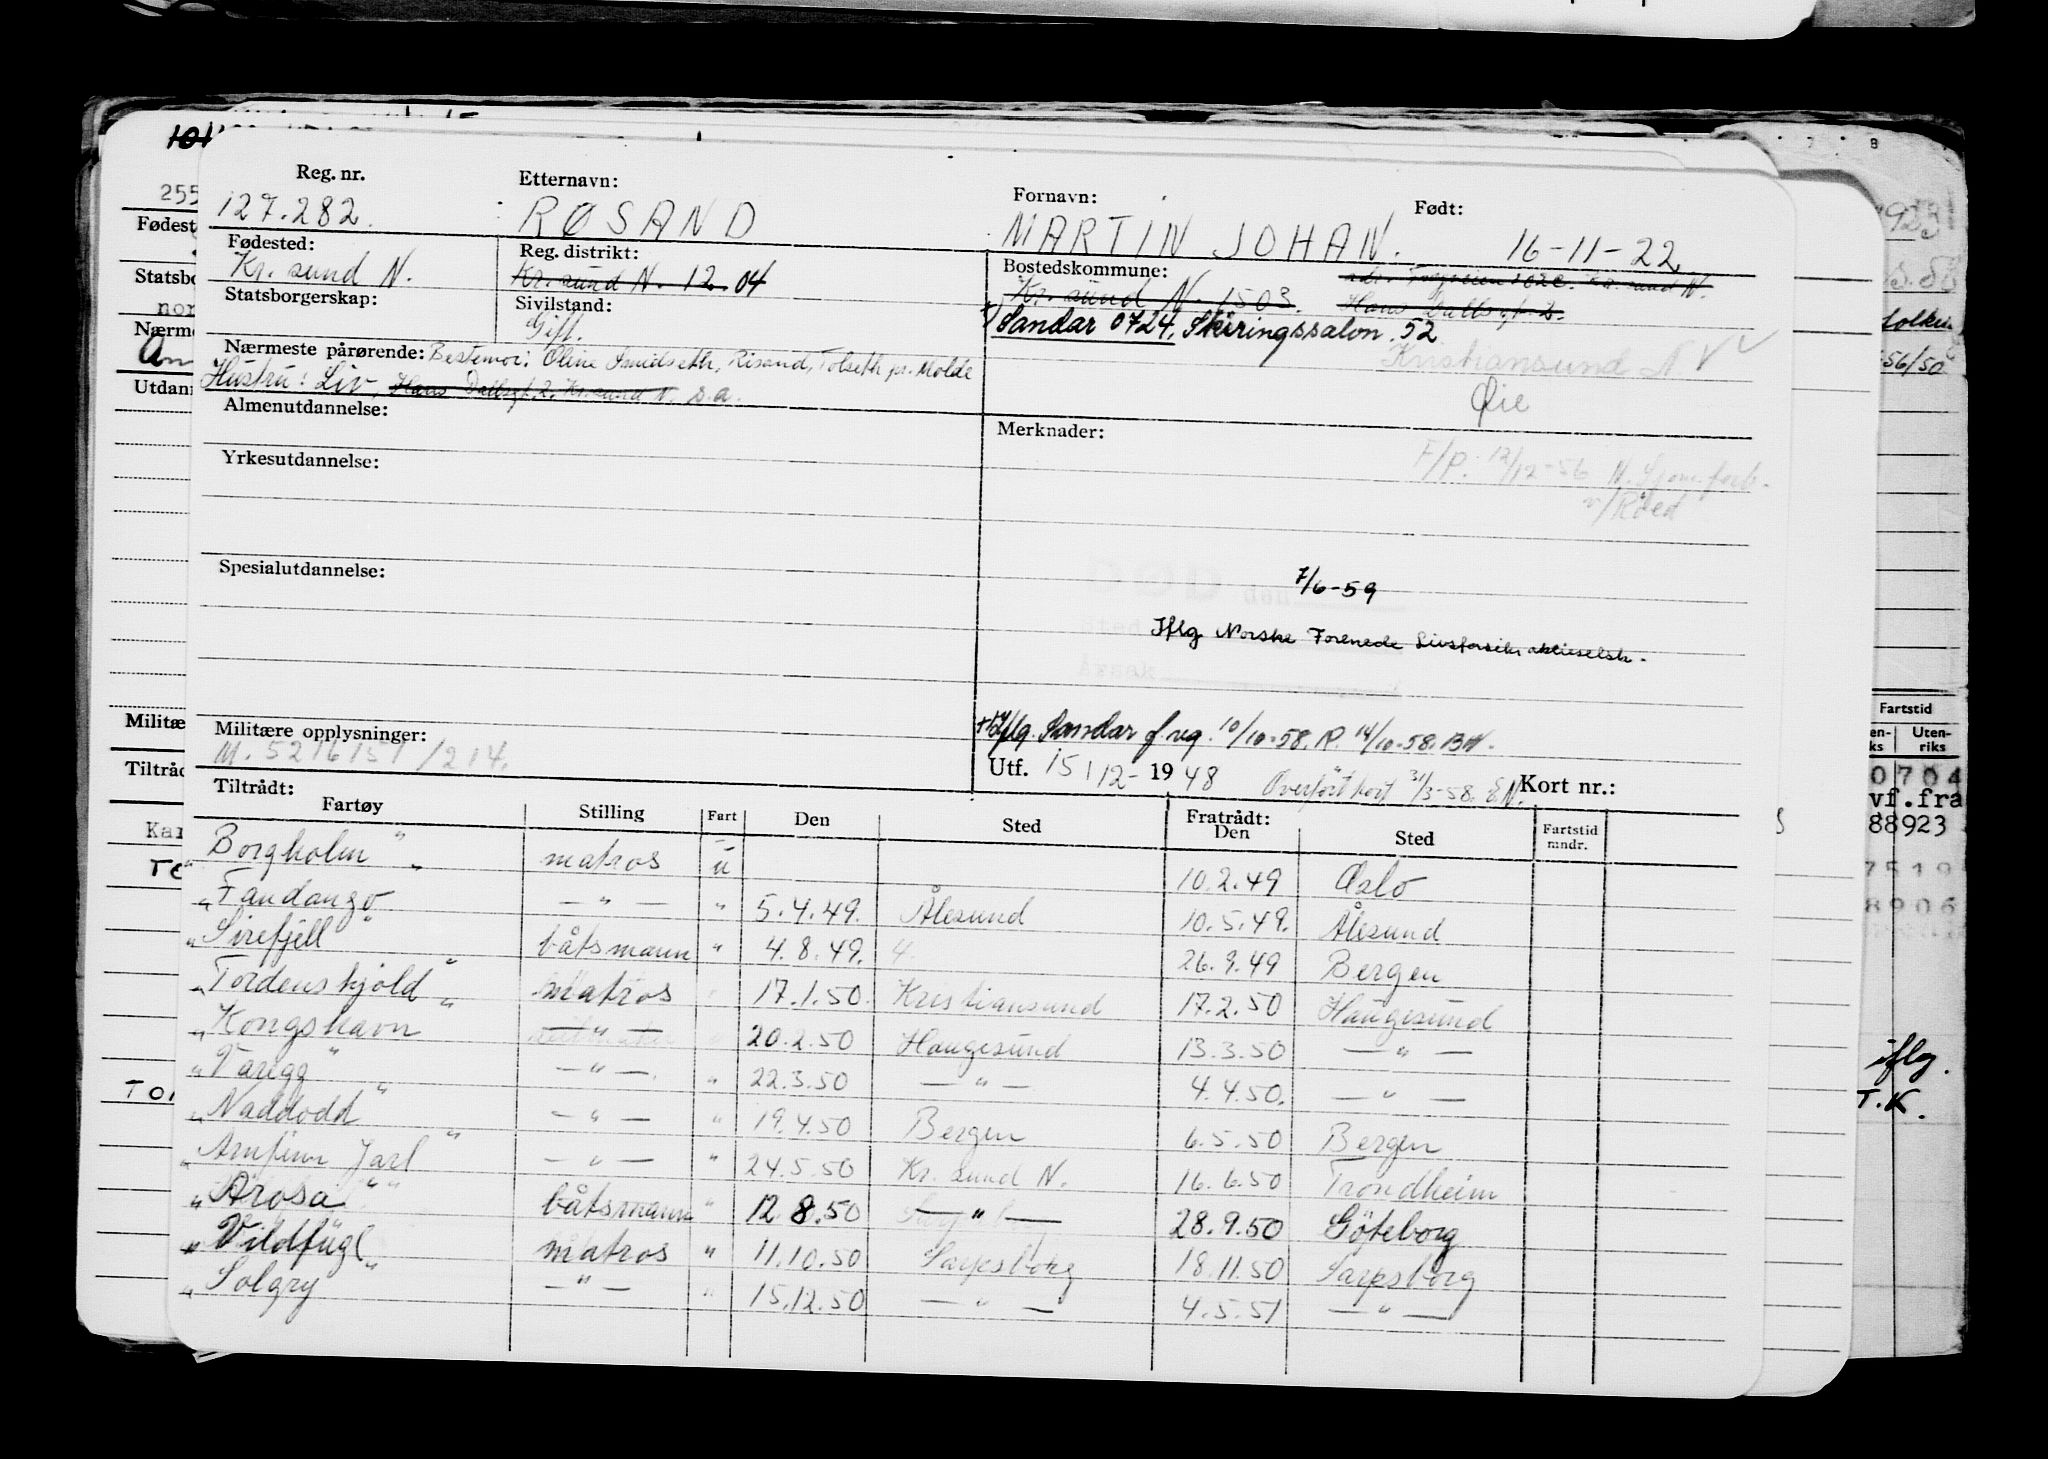 Reg. nr. Etternavn: Fornavn: Født:
127.282. RØSAND MARTIN JOHAN. 16-11-22
Fødested: Reg. distrikt: Bostedskommune:
Kr. sund N. Kr. sund N. 12. 04 Kr. sund N. 1503.
Statsborgerskap: Sivilstand:
Gift. Sandar 0724, Skiringssalon. 52
Kristiansund N.
Øie
Nærmeste pårørende: Bestemor: Oline Smidseth, Risand, Tolseth pr. Molde
Hustru: Liv, Hans Dallsgt. 2, Kr. sund N. s.a.
Almenutdannelse: Merknader:
F/P. 12/12-56 N. Sjøm.forb.
v/Røed
Yrkesutdannelse:
Spesialutdannelse:
DØD den
Sted
Årsak
7/6-59
Iflg. Norske Forenede Livsforsikr aktieselsk.
Militære opplysninger:
M. 5216151/214.
iflg. Sandar f.reg. 10/10-58. R. 14/10-58. BH.
Utf. 15/12-1948 Overført kort 31/3-58. EN. Kort nr.:
Tiltrådt: Fratrådt:
Fartøy Stilling Fart Den Sted Den Sted Fartstid mndr.
" Borgholm " matros u 10.2.49 Oslo
" Fandango — " — " 5.4.49. Ålesund 10.5.49. Ålesund
" Sirefjell " båtsmann " 4.8.49. 26.9.49 Bergen
" Tordenskjold " matros " 17.1.50. Kristiansund 17.2.50 Haugesund
" Kongshavn " — " — " 20.2.50 Haugesund 13.3.50 — " —
" Varegg " — " —. " 22.3.50 — " —. 4.4.50. — " —
" Naddodd " — " — " 19.4.50 Bergen 6.5.50 Bergen
" Arnfinn Jarl " — " — " 24.5.50 Kr. sund N. 16.6.50 Trondheim
" Arosa " båtsmann " 12.8.50 — " — 28.9.50 Göteborg
" Vildfugl matros " 11.10.50 Sarpsborg 18.11.50 Sarpsborg
" Solgry " — " — " 15.12.50 — " — 4.5.51 — " —
Fartstid
Utenriks
0704
vf.fra
88923
iflg.
T.K.